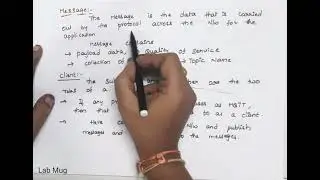 Message:-
The Message is the data that is carried
out by the protocol across the N/w for the
application
message contains
→ payload data, quality of Service
→ collection of → Topic Name
Client:-
The Sub are the two
roles of a
→ If any pr uses as MQTT,
then that to as a client
→ Have co N/w and publish
messages and to the messages.
Lab Mug